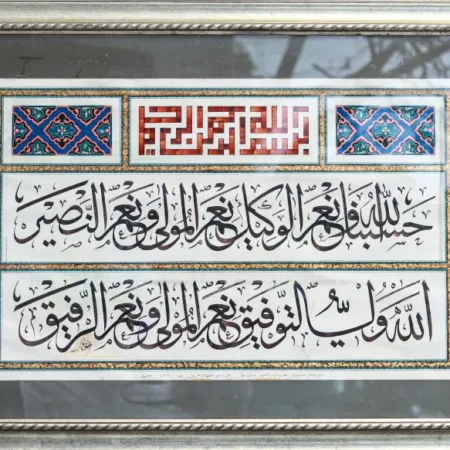 بسم الله الرحمن الرحيم
حسبنا الله ونعم الوكيل نعم المولى ونعم النصير
الله ولي التوفيق نعم المولى ونعم الرفيق